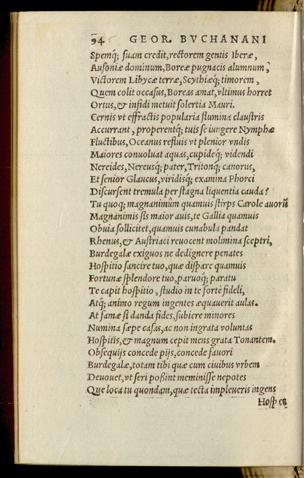 94 GEOR. BVCHANANI
Spemq́; suam credit, rectorem gentis Iberæ,
Ausoniæ dominum, Boreæ pugnacis alumnum,
Victorem Libycæ terræ, Scythiæq; timorem,
Quem colit occasus, Boreas amat, vltimus horret
Ortus, & insidi metuit solertia Mauri.
Cernis vt effractis popularia flumina claustris
Accurrant, properentq́; tuis se iungere Nymphæ
Fluctibus, Oceanus refluis vt plenior vndis
Maiores conuoluat aquas, cupideq́; videndi
Nereides, Nereusq́; pater, Tritonq́; canorus,
Et senior Glaucus, viridisq́; examina Phorci
Discursent tremula per stagna liquentia cauda?
Tu quoq; magnanimûm quamuis stirps Carole auorũ
Magnanimis sis maior auis, te Gallia quamuis
Obuia sollicitet, quamuis cunabula pandat
Rhenus, & Austriaci reuocent molimina sceptri,
Burdegalæ exiguos ne dedignere penates
Hospitio sancire tuo, quæ dispare quamuis
Fortunæ splendore tuo, paruoq́; paratu
Te capit hospitio, studio in te forte fideli,
Atq; animo regum ingentes æquauerit aulas.
At famæ si danda fides, subiere minores
Numina sæpe casas, ac non ingrata voluntas
Hospitis, & magnum cepit mens grata Tonantem.
Obsequijs concede pijs, concede fauori
Burdegalæ, totam tibi quæ cum ciuibus vrbem
Deuouet, vt seri possint meminisse nepotes
Que loca tu quondam, quæ tecta impleueris ingens
Hosp